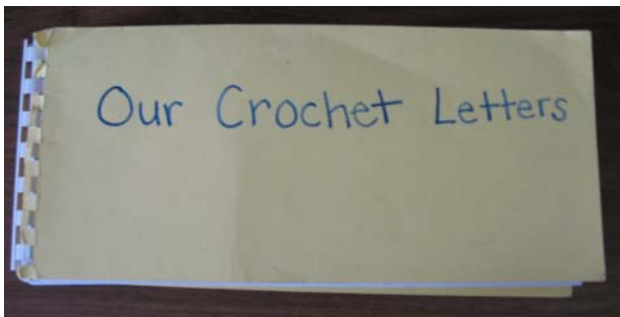 Our Crochet Letters